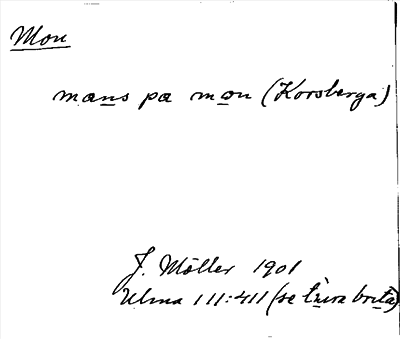 Mon
mans pa mon (Korsberga)
J. Möller 1901
Ulma 111:411 (se tvira brita)